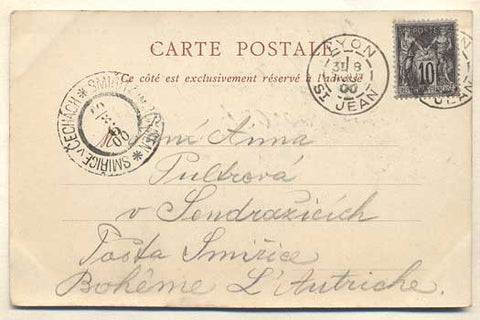 CARTE POSTALE
Ce côté est exclusivement réservé à l'adresse
LYON
31 8
00
ST JEAN
POSTE
10
SMIŘICE V ČECHÁCH
00
Anna
Pultrová
v Sendražicích
Pošta Smiřice
Bohême L'Autriche.